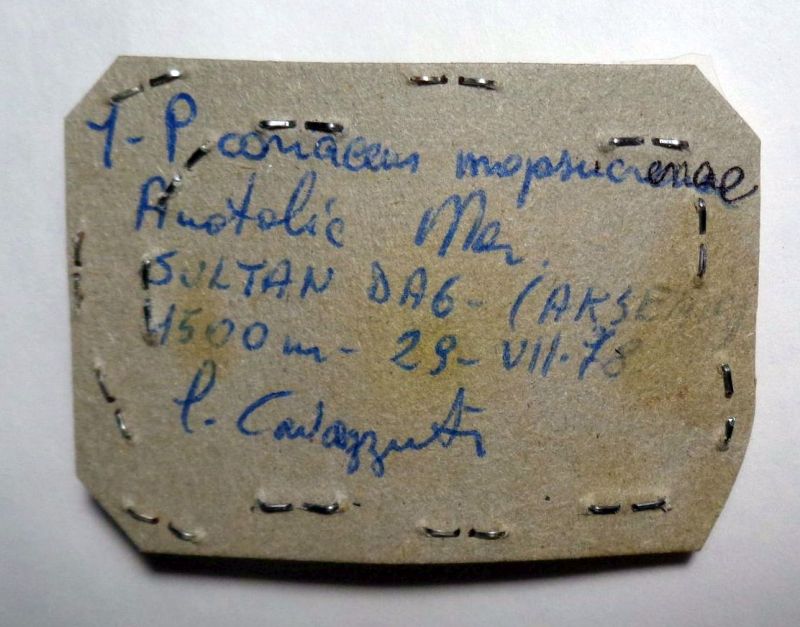 1-P coriaceus mopsucrenae
Anatolie Mer.
SULTAN DAG - (AKSEHIR)
1500 m - 29-VII-78
P. Cavazzuti